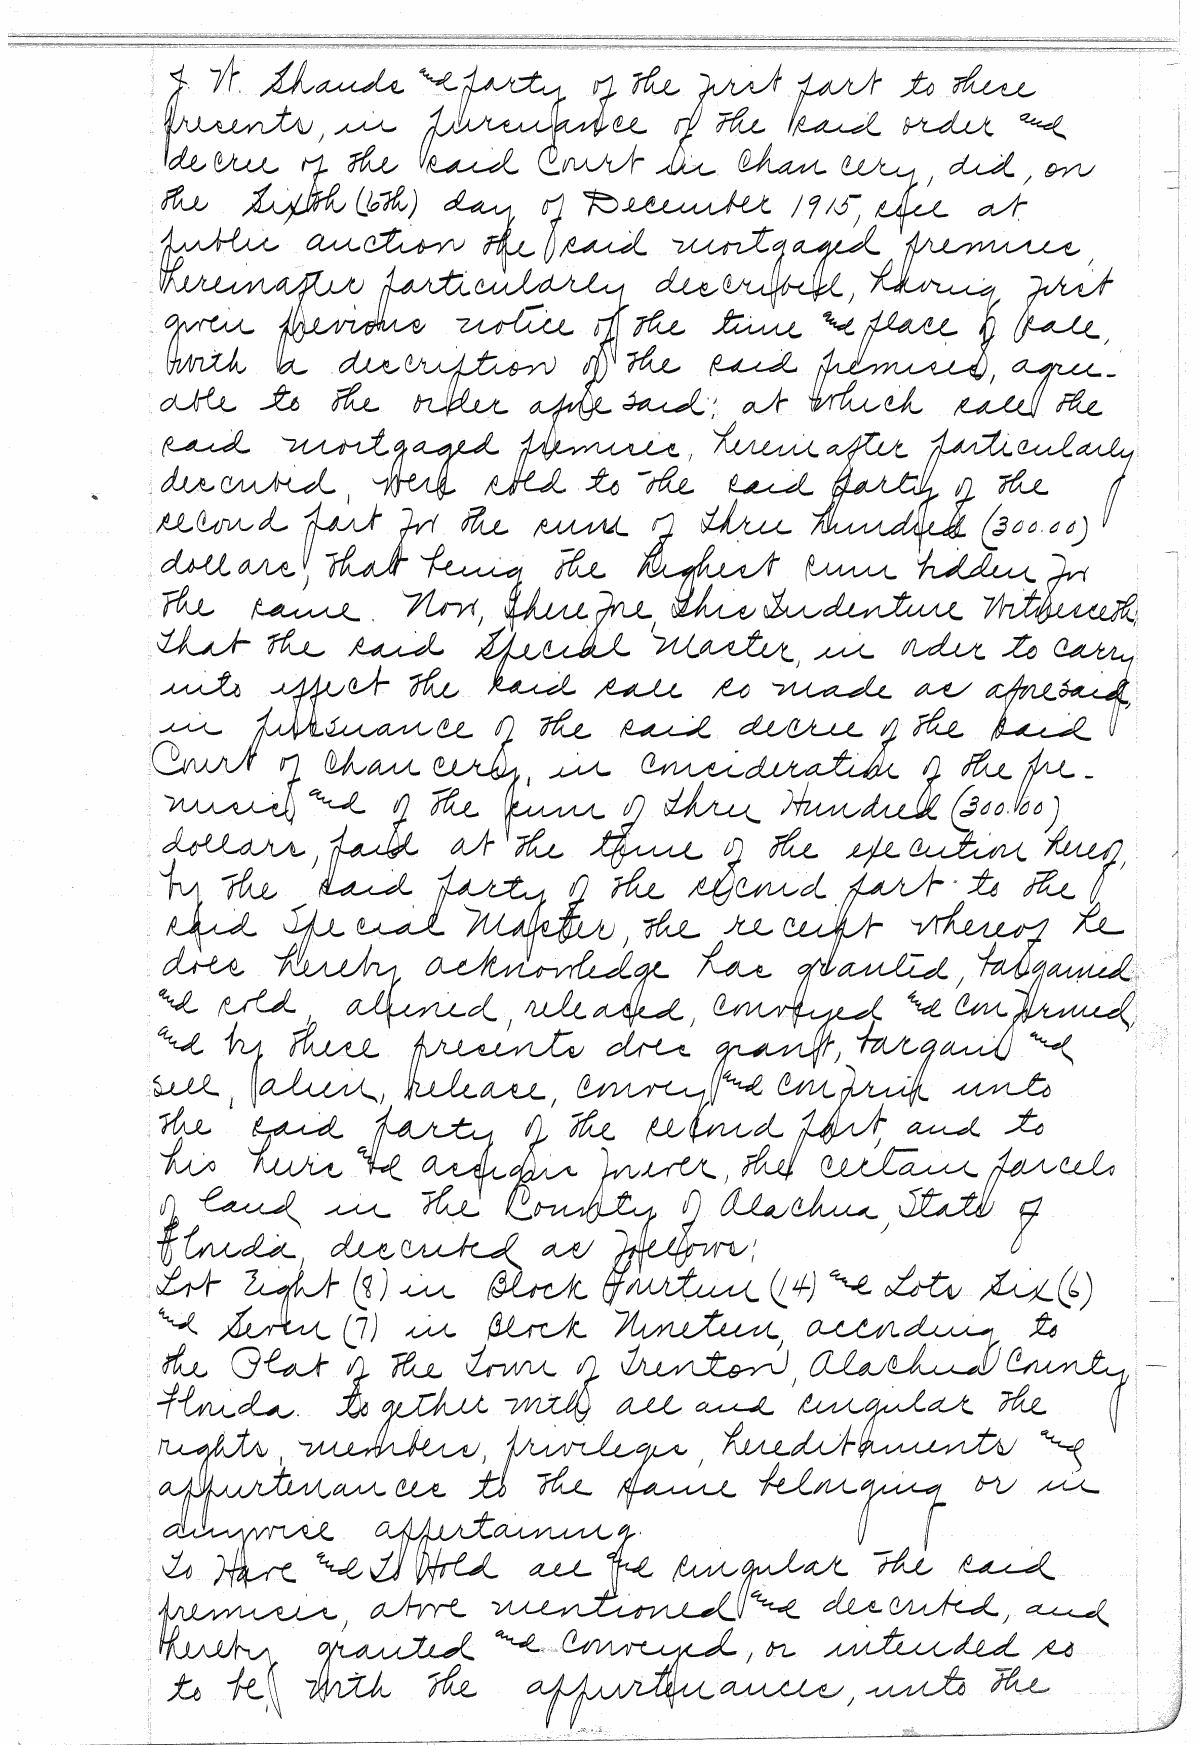 J. W. Shands and party of the first part to these
presents, in pursuance of the said order and
decree of the said Court in Chancery, did, on
the Sixth (6th) day of December 1915, sell at
public auction the said mortgaged premises,
hereinafter particularly described, having first
given previous notice of the time and place of sale,
with a description of the said premises, agree-
able to the order aforesaid; at which sale the
said mortgaged premises, hereinafter particularly
described, were sold to the said party of the
second part for the sum of Three hundred (300.00)
dollars, that being the highest sum bidden for
the same. Now, therefore, This Indenture Witnesseth,
That the said Special Master, in order to carry
into effect the said sale so made as aforesaid,
in pursuance of the said decree of the said
Court of Chancery, in consideration of the pre-
mises and of the sum of Three Hundred (300.00)
dollars, paid at the time of the execution hereof,
by the said party of the second part to the
said Special Master, the receipt whereof he
does hereby acknowledge has granted, bargained
and sold, aliened, released, conveyed and confirmed,
and by these presents does grant, bargain and
sell, alien, release, convey and confirm unto
the said party of the second part, and to
his heirs and assigns forever, the certain parcels
of land in the County of Alachua, State of
Florida, described as follows:
Lot Eight (8) in Block Fourteen (14) and Lots Six (6)
and Seven (7) in Block Nineteen, according to
the Plat of the Town of Trenton, Alachua County
Florida. together with all and singular the
rights, members, privileges, hereditaments and
appurtenances to the same belonging or in
anywise appertaining.
To Have and To Hold all and singular the said
premises, above mentioned and described, and
hereby granted and conveyed, or intended so
to be, with the appurtenances, unto the